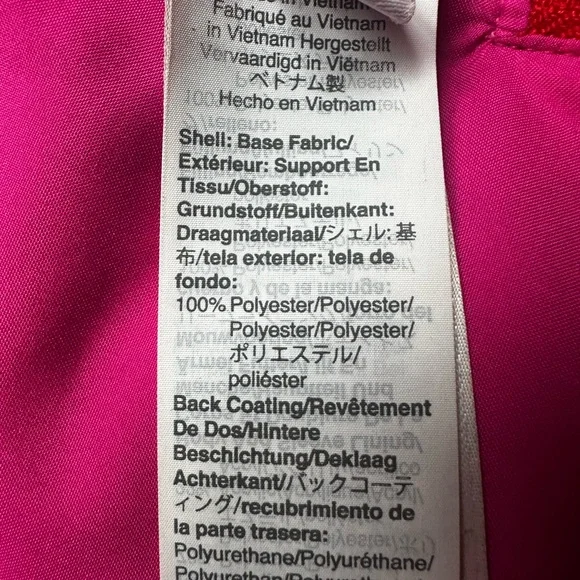 in Vietnam
Fabriqué au Vietnam
in Vietnam Hergestellt
Vervaardigd in Viëtnam
ベトナム製
Hecho en Vietnam
Shell: Base Fabric/
Extérieur: Support En
Tissu/Oberstoff:
Grundstoff/Buitenkant:
Draagmateriaal/シェル: 基
布/tela exterior: tela de
fondo:
100% Polyester/Polyester/
Polyester/Polyester/
ポリエステル/
poliéster
Back Coating/Revêtement
De Dos/Hintere
Beschichtung/Deklaag
Achterkant/バックコーテ
ィング/recubrimiento de
la parte trasera:
Polyurethane/Polyuréthane/
Polyurethan/Polyurethaan/